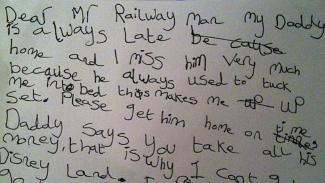 Dear Mr Railway man my Daddy
is always late because
home and I miss him very much
because he always used to tuck
me into bed this makes me up up
set. Please get him home on time
Daddy says you take all his
money, that is why I cant go
Disney Land.